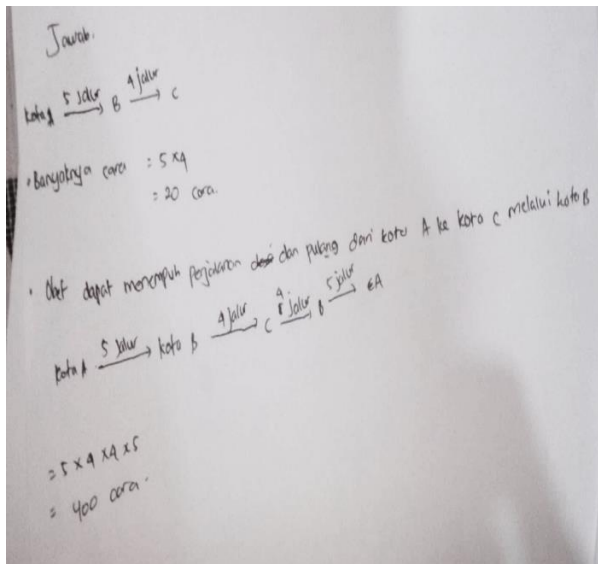 Jawab.
Kota A 5 jalur → B 4 jalur → C
• Banyaknya cara = 5 x 4
= 20 cara.
• Obet dapat menempuh perjalanan dan pulang dari kota A ke kota C melalui kota B
Kota A 5 jalur → kota B 4 jalur → C 4 jalur → B 5 jalur → A
= 5 x 4 x 4 x 5
= 400 cara.